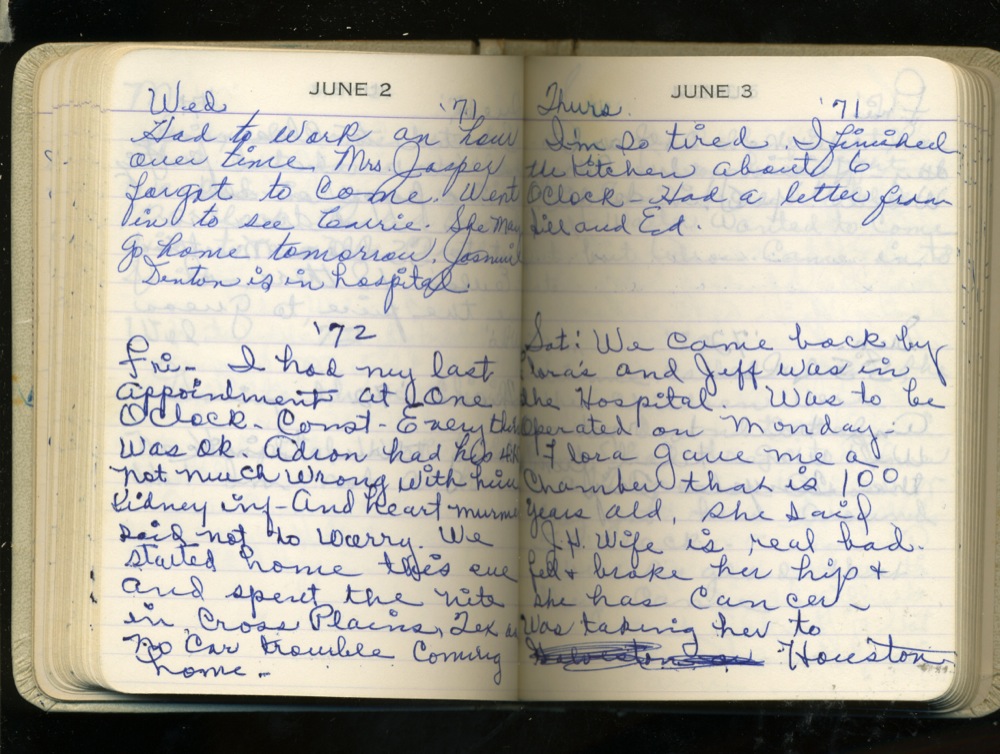 JUNE 2
Wed '71
Had to work an hour
over time. Mrs. Jasper
forgot to come. Went
in to see Carrie. She may
go home tomorrow.
Denton is in hospital.
'72
Fri- I had my last
appointment at One
OClock - Const - Everythin
was ok. Adron had his
not much wrong with him
Kidney inf - And heart murme
said not to worry. We
started home this eve
and spent the nite
in Cross Plains, Tex
No Car trouble Coming
home.
JUNE 3
Thurs. '71
I'm so tired. I finished
the kitchen about 6
OClock - Had a letter from
and Ed.
Sat: We came back by
Flora's and Jeff was in
the Hospital. Was to be
Operated on Monday.
Flora gave me a
Chamber that is 100
years old, she said
J.H. Wife is real bad.
fell + broke her hip +
she has Cancer -
Was taking her to
Houston